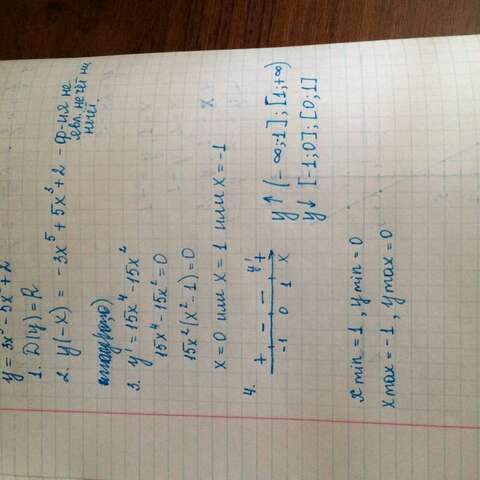 y = 3x⁵ - 5x³ + 2
1. D(y) = R
2. y(-x) = -3x⁵ + 5x³ + 2 - ф-ия не
явл. не чёт ни
нечёт.
3. y' = 15x⁴ - 15x²
15x⁴ - 15x² = 0
15x²(x² - 1) = 0
x = 0 или x = 1 или x = -1
4.
+ - - y' +
-1 0 1 x
y↑ (-∞;-1]; [1;+∞)
y↓ [-1;0]; [0;1]
x min = 1, y min = 0
x max = -1, y max = 0